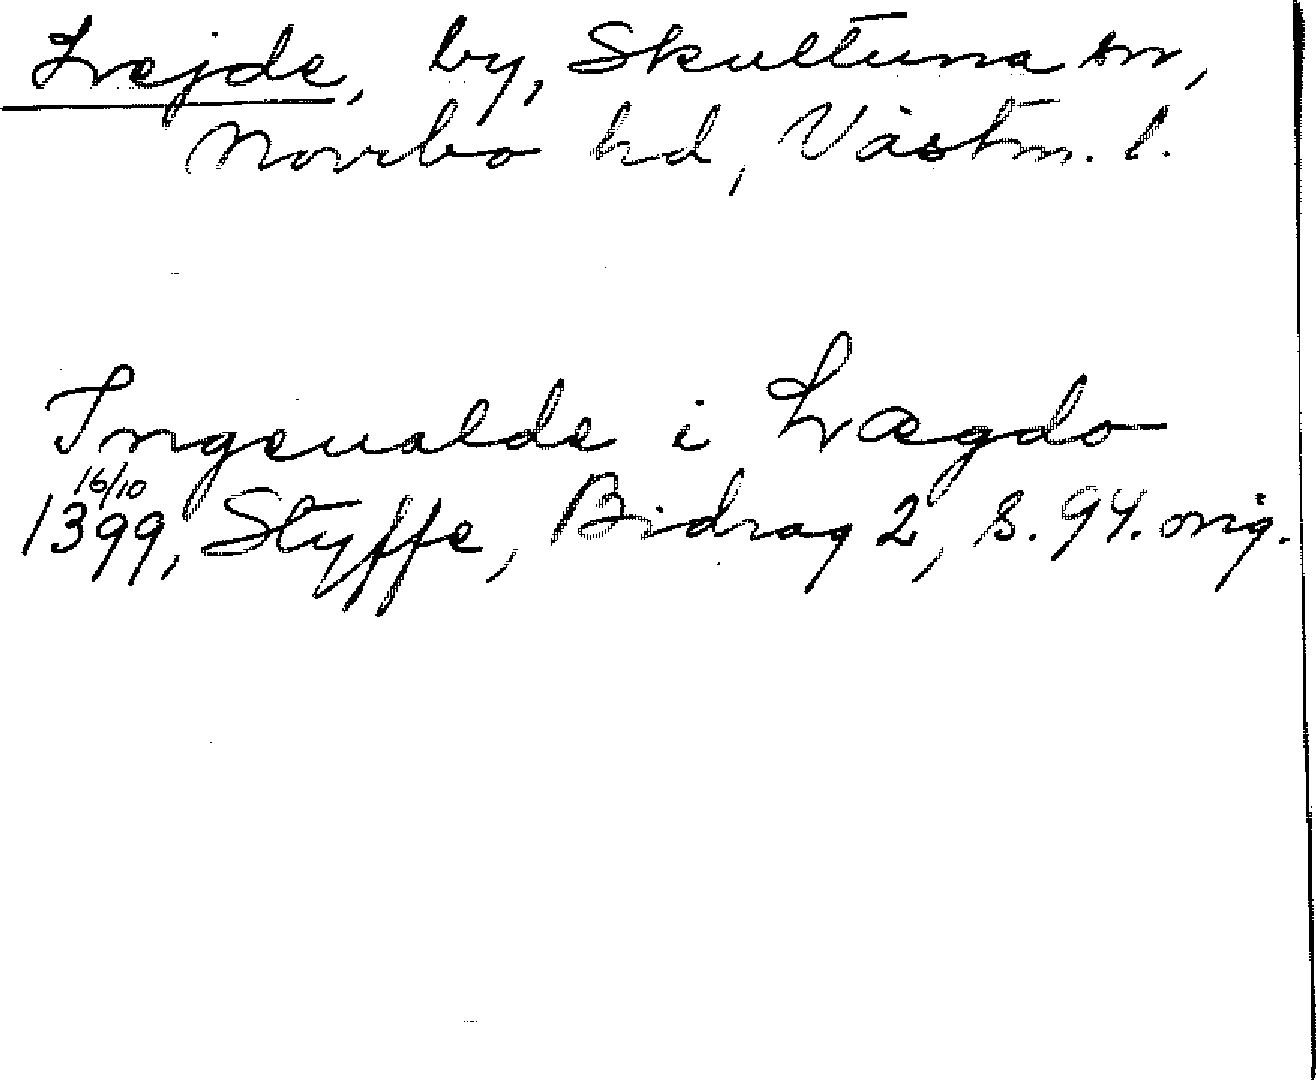 by, Skultuna sn,
Norrbo hd, Västm. l.
Ingeualde i
16/10
1399, Styffe, Bidrag 2, S. 94. orig.